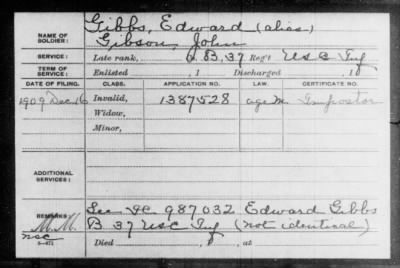 Gibbs, Edward (alias)
NAME OF SOLDIER: Gibson, John
SERVICE: Late rank, B, 37 Reg't U S C Inf
TERM OF SERVICE: Enlisted , 1 Discharged , 1
DATE OF FILING. CLASS. APPLICATION NO. LAW. CERTIFICATE NO.
1909 Dec 16 Invalid, 1387528 Impostor
Widow,
Minor,
ADDITIONAL SERVICES:
See 987032 Edward Gibbs
REMARKS: B 37 USC Inf (not identical)
M.M.
NSC
Died , 1 , at